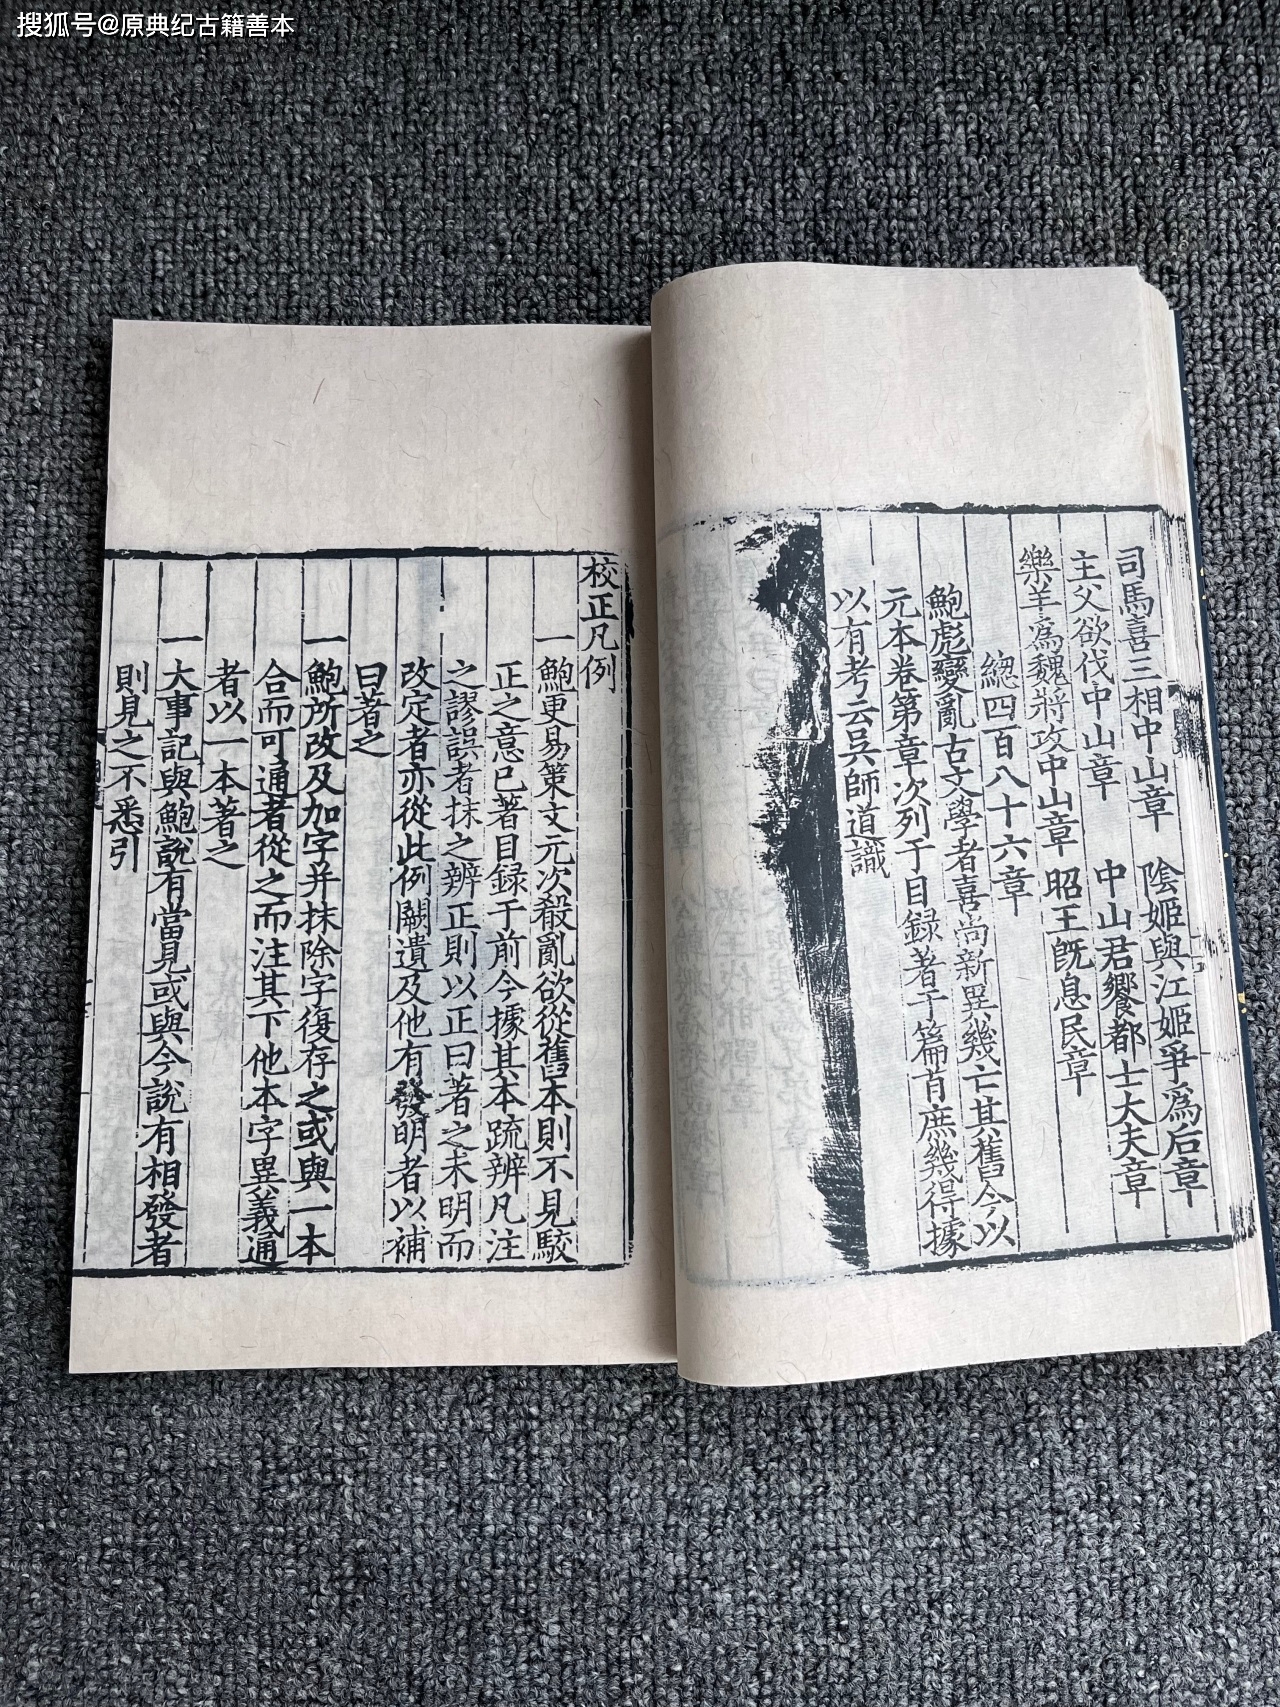 搜狐号@原典纪古籍善本
司馬喜三相中山章　陰姬與江姬爭爲后章
主父欲伐中山章　中山君饗都士大夫章
樂羊爲魏將攻中山章　昭王旣息民章
緫四百八十六章
鮑彪變亂古文學者喜尚新異幾亡其舊今以
元本卷第章次列于目録著于篇首庶幾得據
以有考云吴師道識
校正凡例
一鮑更易策文元次殽亂欲從舊本則不見駮
正之意已著目録于前今據其本疏辨凡注
之謬誤者抹之辨正則以正曰著之未明而
改定者亦從此例闕遺及他有發明者以補
曰著之
一鮑所改及加字并抹除字復存之或與一本
合而可通者從之而注其下他本字異義通
者以一本著之
一大事記與鮑説有當見或與今説有相發者
則見之不悉引